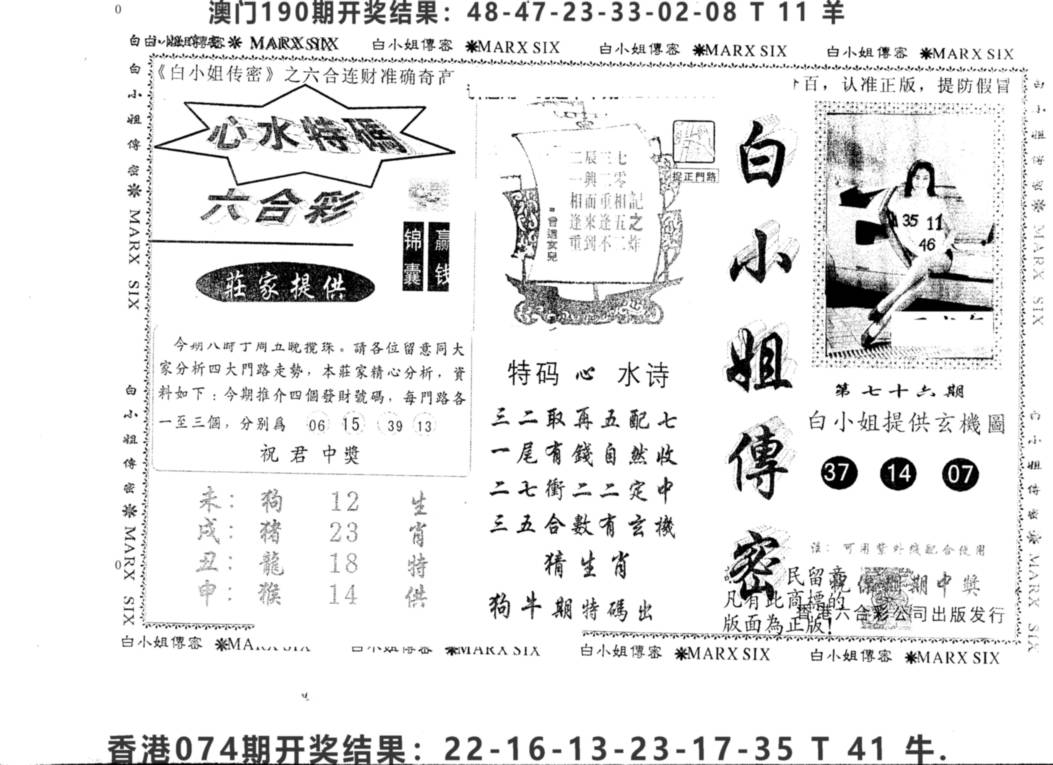 澳门190期开奖结果：48-47-23-33-02-08 T 11 羊
白小姐傳密 ❋MARX SIX 白小姐傳密 ❋MARX SIX 白小姐傳密 ❋MARX SIX
《白小姐传密》之六合连财准确奇高
百，认准正版，提防假冒
心水特碼
六合彩
锦囊
赢钱
莊家提供
今期八時丁周五晚攪珠。請各位留意同大
家分析四大門路走勢，本莊家精心分析，資
料如下：今期推介四個發財號碼，每門路各
一至三個，分别爲 06 15 39 13
祝君中獎
未：狗 12 生
戌：猪 23 肖
丑：龍 18 特
申：猴 14 供
二辰三七
一興二零
相而重相記
逢來逢五之
重到不二炸
曾遇女兒
捉正門路
特码心水诗
三二取再五配七
一尾有錢自然收
二七衝二二定中
三五合數有玄機
猜生肖
狗牛期特碼出
白小姐傳密
35 11
46
第七十六期
白小姐提供玄機圖
37 14 07
注：可用紫外线配合使用
期中獎
民留意
凡有此商標的
版面為正版！
香港六合彩公司出版发行
白小姐傳密 ❋MARX SIX
白小姐傳密 ❋MARX SIX
白小姐傳密 ❋MARX SIX 白小姐傳密 ❋MARX SIX
香港074期开奖结果：22-16-13-23-17-35 T 41 牛.